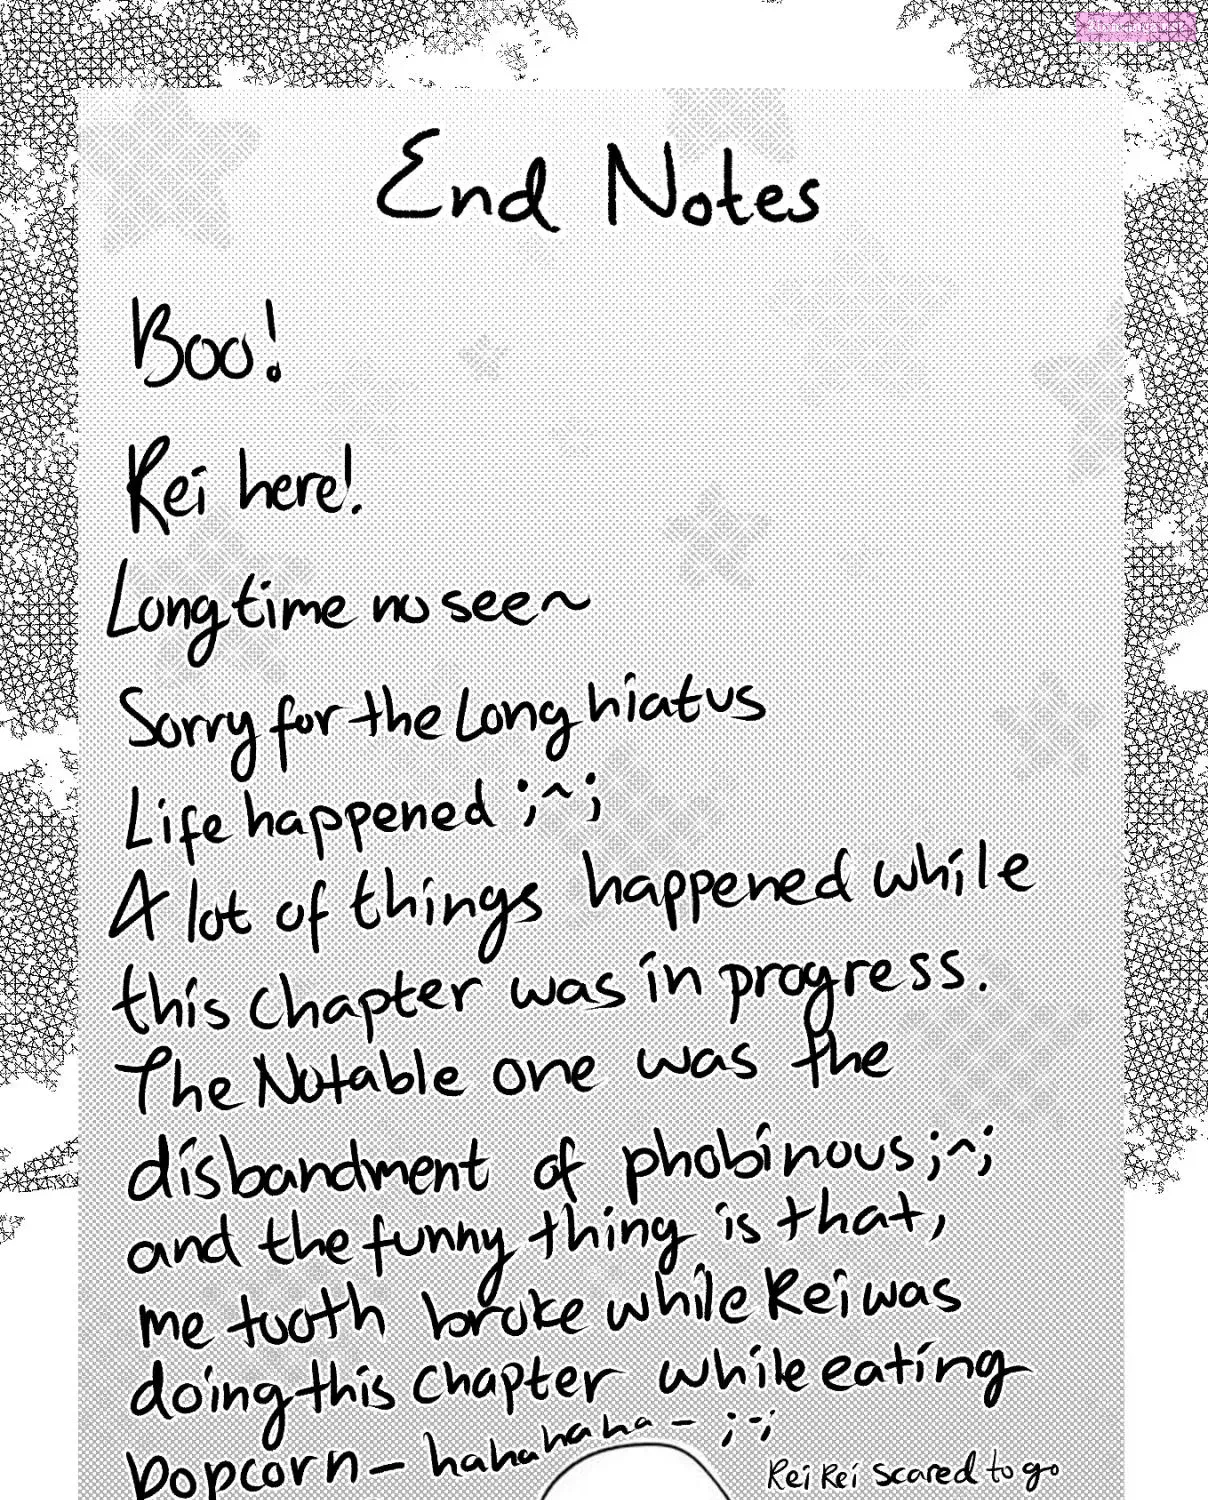 End Notes
Boo!
Rei here!
Long time no see~
Sorry for the long hiatus
Life happened ;^;
A lot of things happened while
this chapter was in progress.
The Notable one was the
disbandment of phobinous ;^;
and the funny thing is that,
me tooth broke while Rei was
doing this chapter while eating
popcorn - hahahahaha - ;-;
Rei Rei scared to go